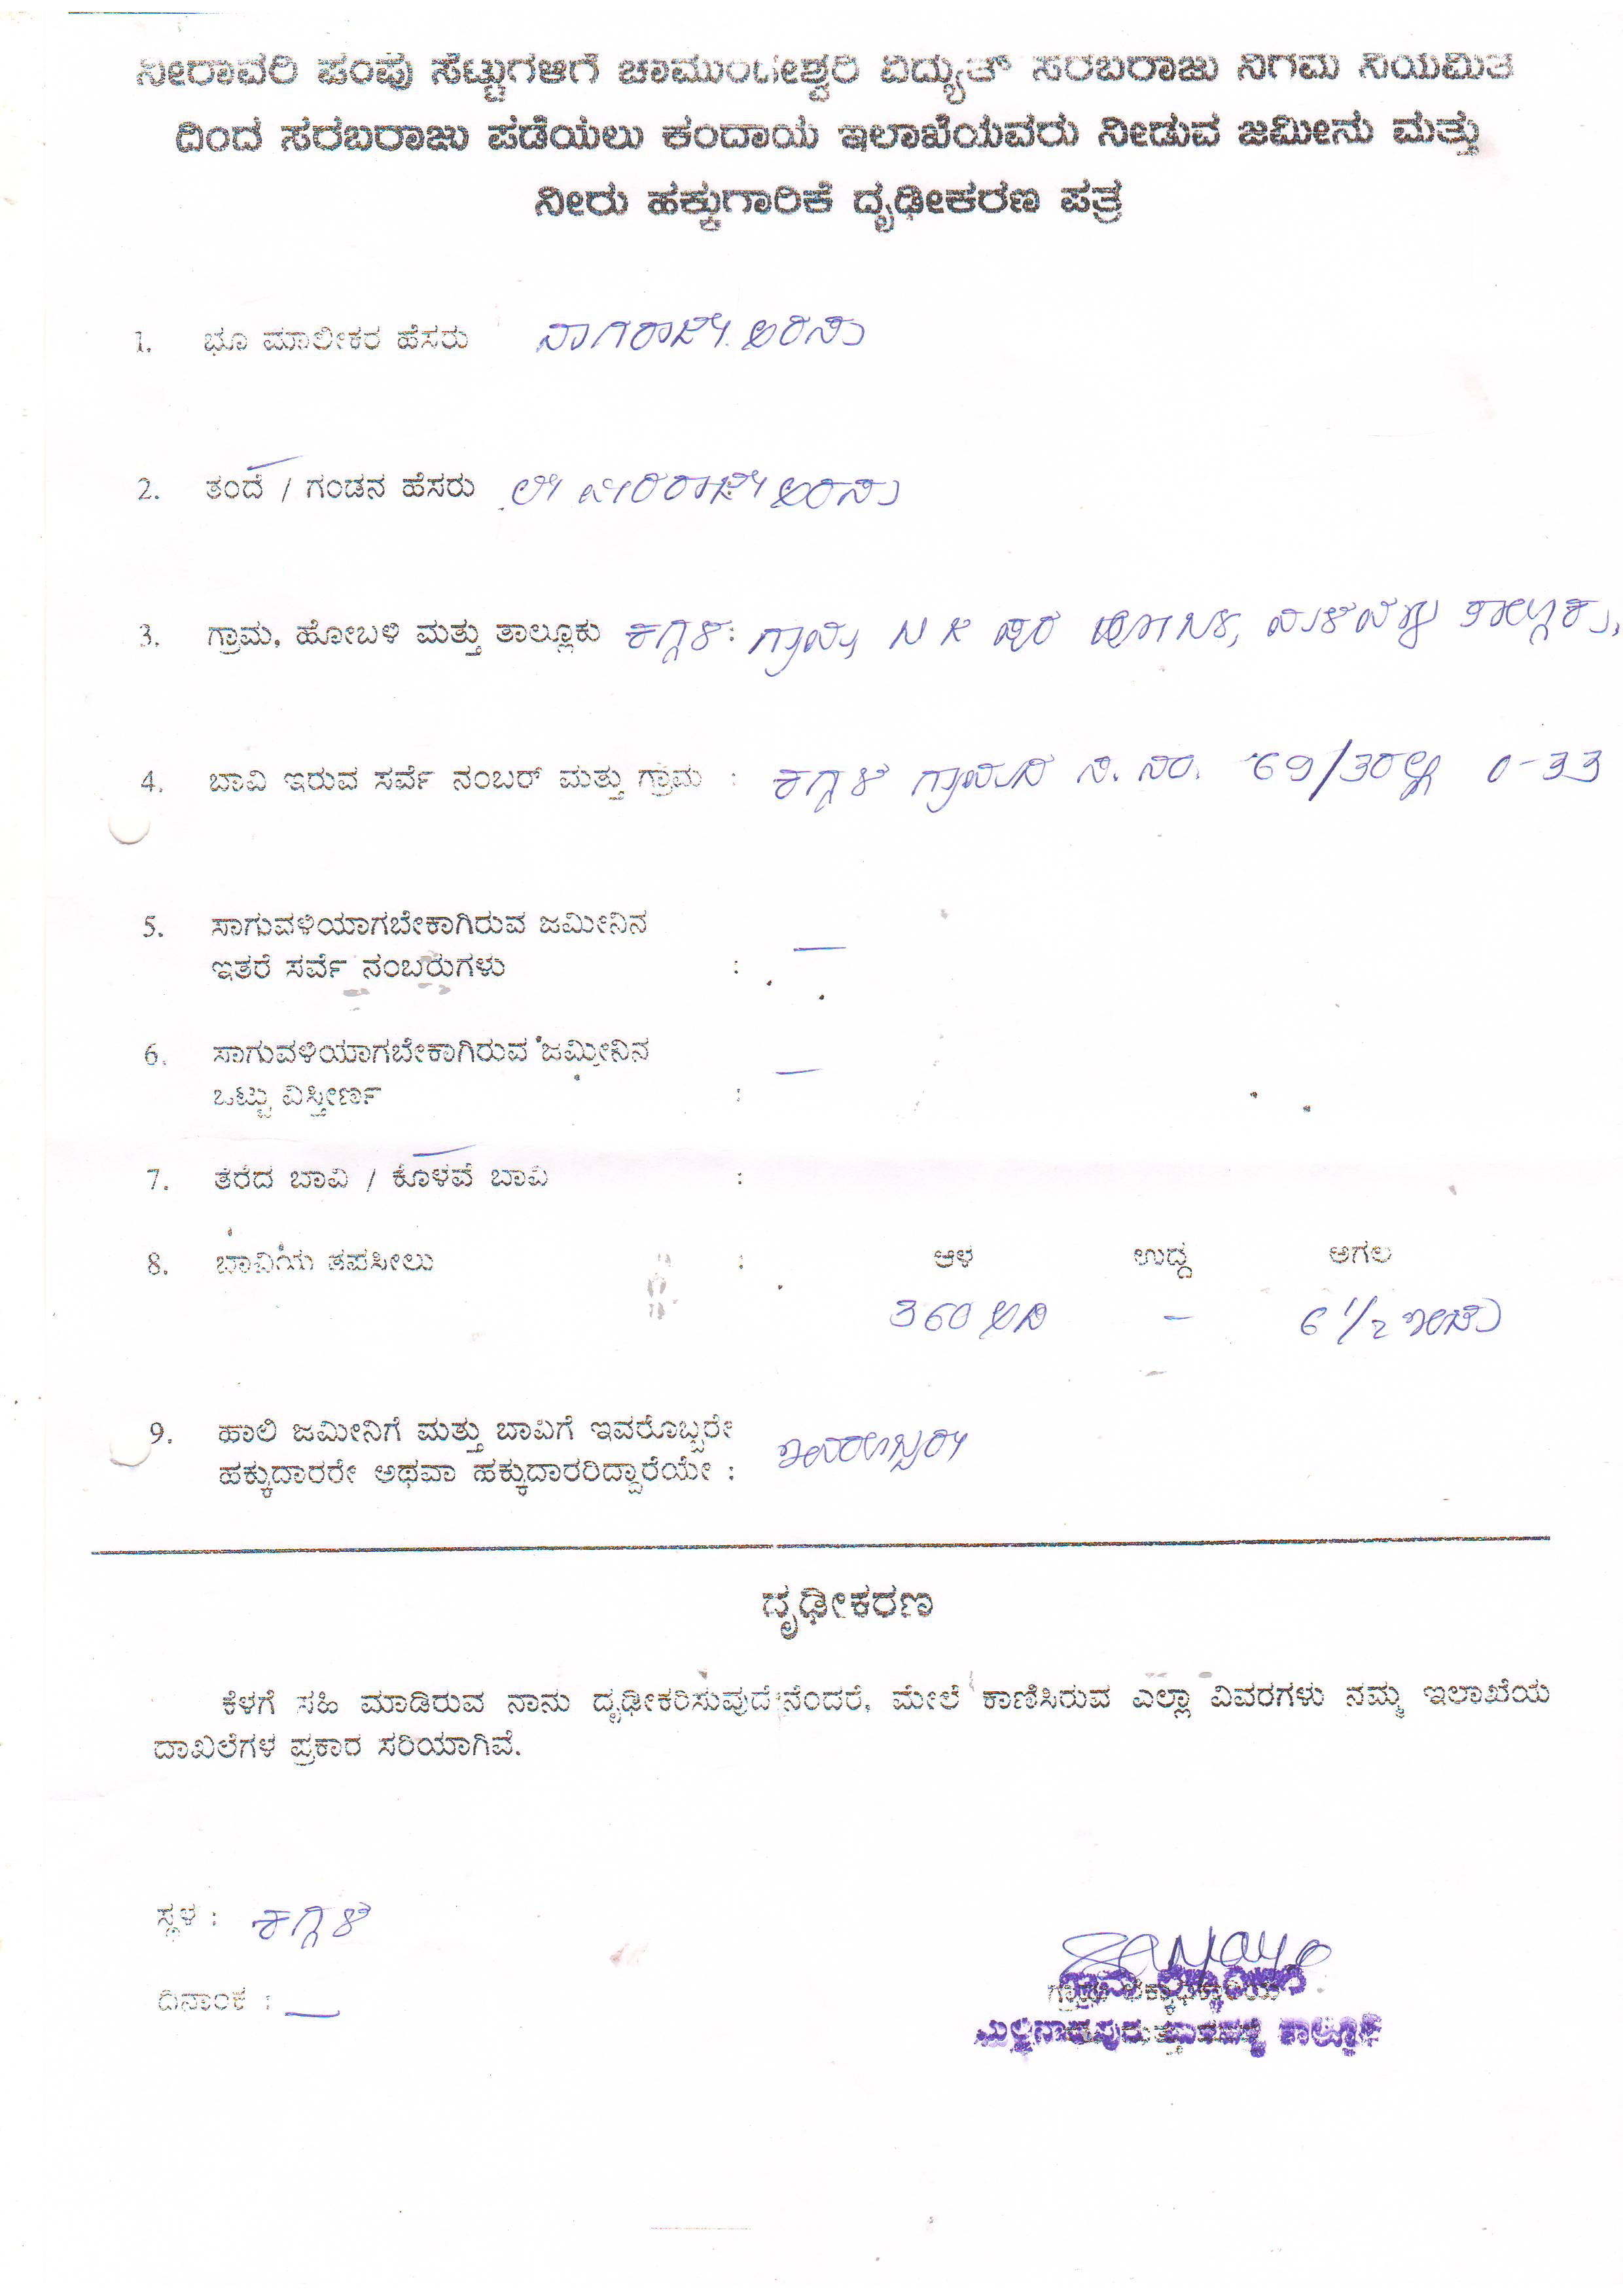 ನೀರಾವರಿ ಪಂಪು ಸೆಟ್ಟುಗಳಿಗೆ ಚಾಮುಂಡೇಶ್ವರಿ ವಿದ್ಯುತ್ ಸರಬರಾಜು ನಿಗಮ ನಿಯಮಿತ
ದಿಂದ ಸರಬರಾಜು ಪಡೆಯಲು ಕಂದಾಯ ಇಲಾಖೆಯವರು ನೀಡುವ ಜಮೀನು ಮತ್ತು
ನೀರು ಹಕ್ಕುಗಾರಿಕೆ ದೃಢೀಕರಣ ಪತ್ರ
1. ಭೂ ಮಾಲೀಕರ ಹೆಸರು ನಾಗರಾಜೇ ಅರಸು
2. ತಂದೆ / ಗಂಡನ ಹೆಸರು ಲೇ ವೀರರಾಜೇ ಅರಸು
3. ಗ್ರಾಮ, ಹೋಬಳಿ ಮತ್ತು ತಾಲ್ಲೂಕು ಕಗ್ಗಳಿ: ಗ್ರಾಮ, ಹೋಬಳಿ, ಮಳವಳ್ಳಿ ತಾಲ್ಲೂಕು,
4. ಬಾವಿ ಇರುವ ಸರ್ವೆ ನಂಬರ್ ಮತ್ತು ಗ್ರಾಮ : ಕಗ್ಗಳಿ ಗ್ರಾಮದ ಸ. ನಂ. 69/3ರಲ್ಲಿ 0-33
5. ಸಾಗುವಳಿಯಾಗಬೇಕಾಗಿರುವ ಜಮೀನಿನ
ಇತರೆ ಸರ್ವೆ ನಂಬರುಗಳು : —
6. ಸಾಗುವಳಿಯಾಗಬೇಕಾಗಿರುವ ಜಮೀನಿನ
ಒಟ್ಟು ವಿಸ್ತೀರ್ಣ : —
7. ತೆರೆದ ಬಾವಿ / ಕೊಳವೆ ಬಾವಿ :
8. ಬಾವಿಯ ತಪಸೀಲು : ಆಳ ಉದ್ದ ಅಗಲ
360 ಅಡಿ – 6 1/2 ಇಂಚು
9. ಹಾಲಿ ಜಮೀನಿಗೆ ಮತ್ತು ಬಾವಿಗೆ ಇವರೊಬ್ಬರೇ
ಹಕ್ಕುದಾರರೇ ಅಥವಾ ಹಕ್ಕುದಾರರಿದ್ದಾರೆಯೇ : ಇವರೊಬ್ಬರೇ
ದೃಢೀಕರಣ
ಕೆಳಗೆ ಸಹಿ ಮಾಡಿರುವ ನಾನು ದೃಢೀಕರಿಸುವುದೇನೆಂದರೆ, ಮೇಲೆ ಕಾಣಿಸಿರುವ ಎಲ್ಲಾ ವಿವರಗಳು ನಮ್ಮ ಇಲಾಖೆಯ
ದಾಖಲೆಗಳ ಪ್ರಕಾರ ಸರಿಯಾಗಿವೆ.
ಸ್ಥಳ : ಕಗ್ಗಳಿ
ದಿನಾಂಕ : —